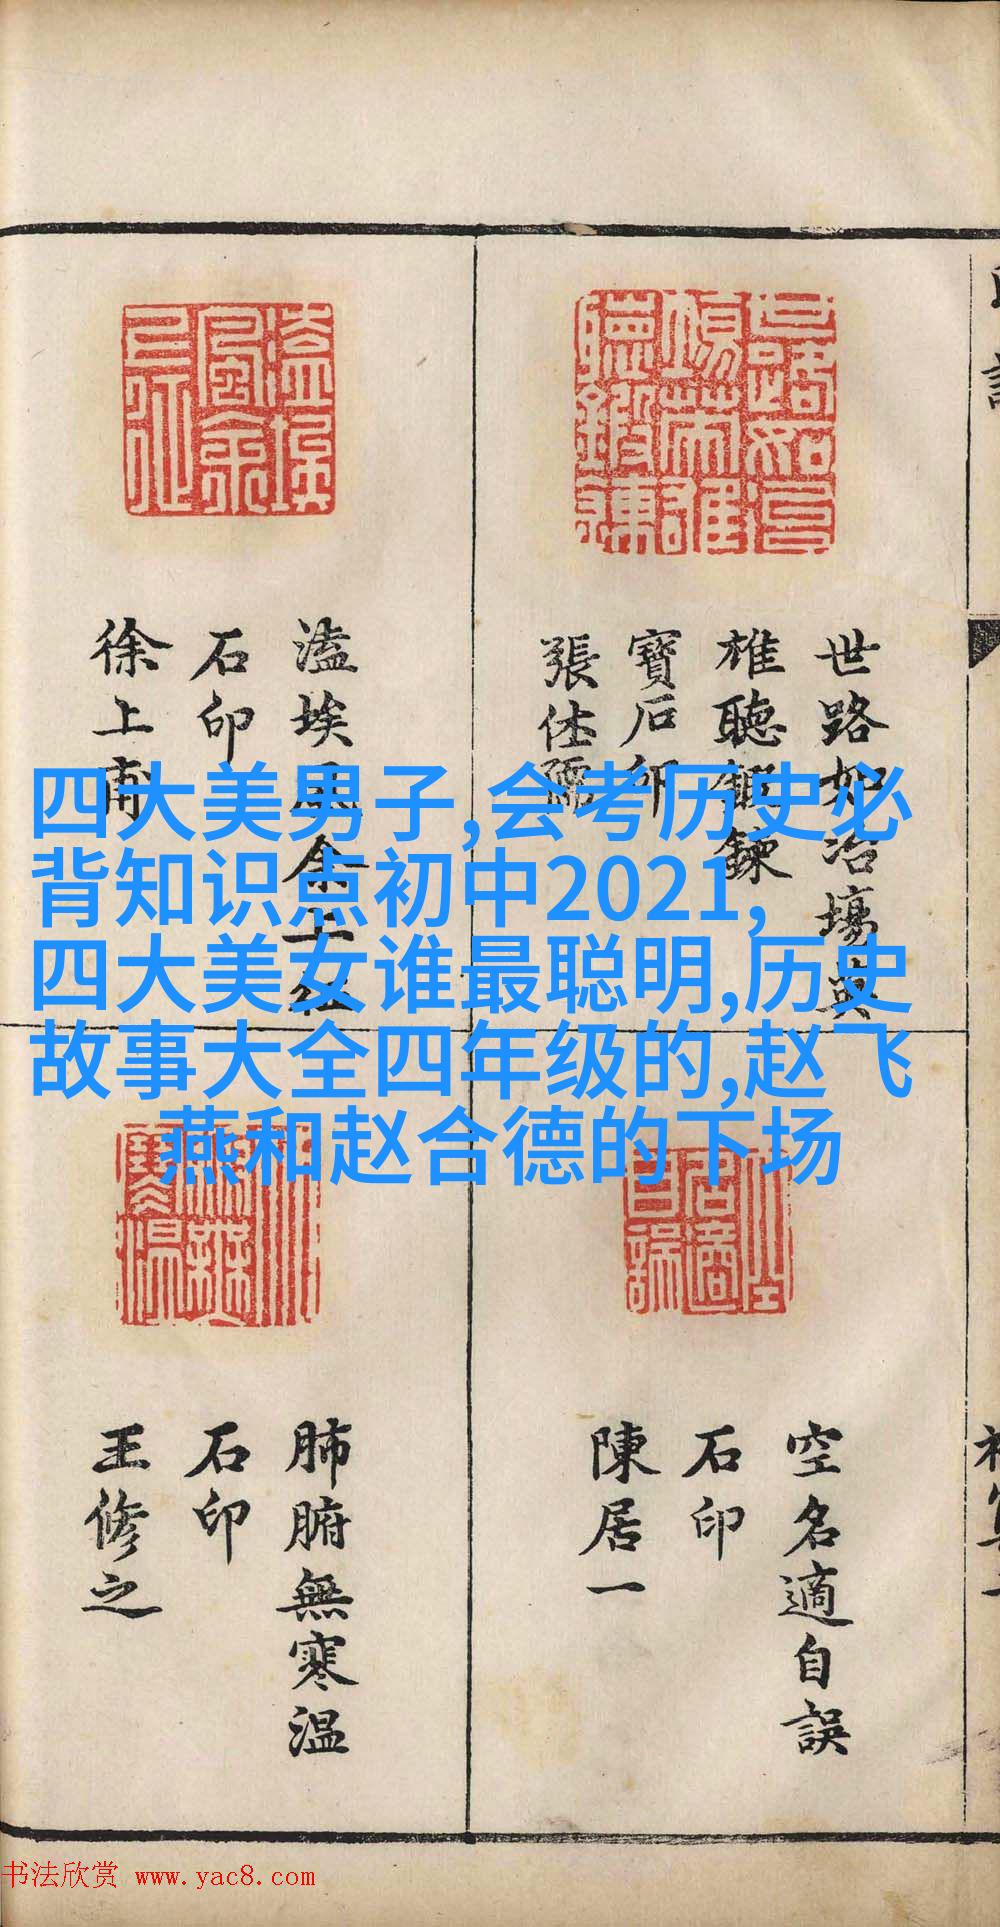 世路如冶場與
雄聽鍜鍊
寶石印
張仕儒
溘埃風余上征
石印
徐上甫
四大美男子,会考历史必
背知识点初中2021,
四大美女谁最聪明,历史
故事大全四年级的,赵飞
燕和赵合德的下场
空名適自誤
石印
陳居一
肺腑無寒温
石印
王修之
书法欣赏 www.yac8.com